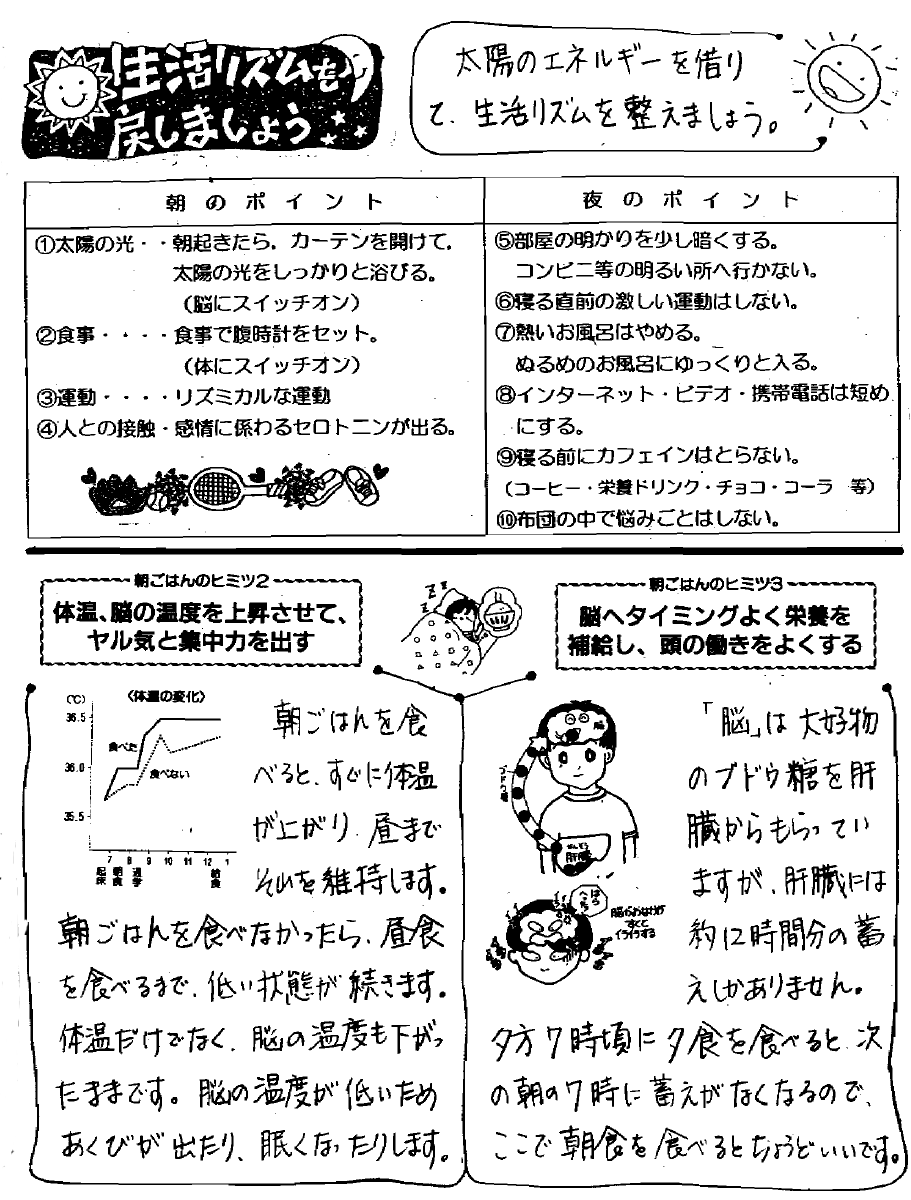 生活リズムを
戻しましょう
太陽のエネルギーを借り
て、生活リズムを整えましょう。
朝のポイント
①太陽の光・・朝起きたら，カーテンを開けて，
太陽の光をしっかりと浴びる。
（脳にスイッチオン）
②食事・・・・食事で腹時計をセット。
（体にスイッチオン）
③運動・・・・リズミカルな運動
④人との接触・感情に係わるセロトニンが出る。
夜のポイント
⑤部屋の明かりを少し暗くする。
コンビニ等の明るい所へ行かない。
⑥寝る直前の激しい運動はしない。
⑦熱いお風呂はやめる。
ぬるめのお風呂にゆっくりと入る。
⑧インターネット・ビデオ・携帯電話は短め
にする。
⑨寝る前にカフェインはとらない。
（コーヒー・栄養ドリンク・チョコ・コーラ　等）
⑩布団の中で悩みごとはしない。
朝ごはんのヒミツ2
体温、脳の温度を上昇させて、
ヤル気と集中力を出す
z z z
朝ごはんのヒミツ3
脳へタイミングよく栄養を
補給し、頭の働きをよくする
(℃)
〈体温の変化〉
36.5
36.0
35.5
食べた
食べない
7 8 9 10 11 12 1
起床 朝食 通学 給食
朝ごはんを食
べると、すぐに体温
が上がり、昼まで
それを維持します。
朝ごはんを食べなかったら、昼食
を食べるまで、低い状態が続きます。
体温だけでなく、脳の温度も下がっ
たままです。脳の温度が低いため
あくびが出たり、眠くなったりします。
ブドウ糖
かんぞう
肝臓
はらへった
脳がおなかが
すくと
イライラする
「脳」は大好物
のブドウ糖を肝
臓からもらってい
ますが、肝臓には
約12時間分の蓄
えしかありません。
夕方7時頃に夕食を食べると、次
の朝の7時に蓄えがなくなるので、
ここで朝食を食べるとちょうどいいです。